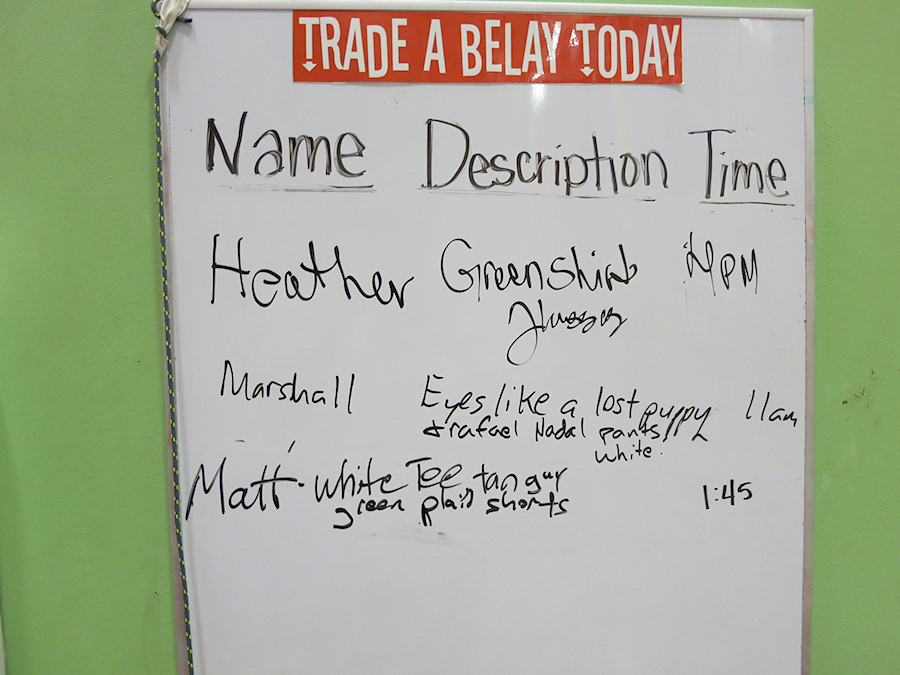 TRADE A BELAY TODAY
Name Description Time
Heather Green shirt 4PM
Marshall Eyes like a lost puppy 11am
+ rafael Nadal pants
white.
Matt - white Tee tan guy
green plaid shorts 1:45